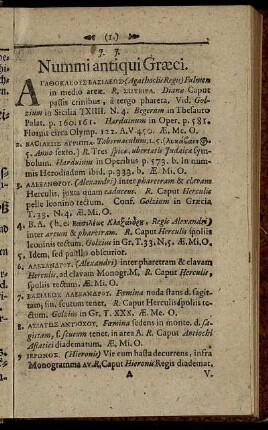 (1.)
J. J.
Nummi antiqui Græci.
ΑΓΑΘΟΚΛΕΟΥΣ ΒΑΣΙΛΕΩΣ (Agathoclis Regis) Fulmen
in medio areæ. R. ΣΩΤΕΙΡΑ. Dianæ Caput
passis crinibus, à tergo pharetra. Vid. Gol-
zium in Sicilia T.XIIII. N.4. Begerum in Thesauro
Palat. p. 160.161. Harduinum in Oper. p. 581.
Floruit circa Olymp. 122. A.V. 450. Æ. Me. O.
2. ΒΑΣΙΛΕΩΣ ΑΓΡΙΠΠΑ. Tabernaculum,
5. Anno sexto.) R. Tres spicæ, ubertatis Judaicæ sym-
bolum. Harduinum in Operibus p. 573. b. in num-
mis Herodiadum ibid. p. 333. a. Æ. Mi. O.
3. ΑΛΕΞΑΝΔΡΟΥ. (Alexandri) inter pharetram & clavam
Herculis, juxta quam caduceus. R. Caput Herculis
pelle leonino tectum. Conf. Golzium in Græcia
T.33. N.4. Æ. Mi. O.
4. B.A. (h. e. Regis Alexandri)
inter arcum & pharetram. R. Caput Herculis spoliis
leoninis tectum. Golzius in Gr. T.33, N, 5, Æ. Mi, O.
5. Idem, sed paullo obscurior.
6. ΑΛΕΞΑΝΔΡΟΥ. (Alexandri) inter pharetram & clavam
Herculis, ad clavam Monogr. M, R. Caput Herculis,
spoliis tectum. Æ. Mi. O.
7. ΒΑΣΙΛΕΩΣ ΑΛΕΞΑΝΔΡΟΥ. Fœmina nuda stans d. sagit-
tam, sin, scutum tenet, R. Caput Herculis spoliis tec-
tum. Golzius in Gr. T. XXX. Æ. Me. O.
8. ΑΣΙΑΤΙΣ ΑΝΤΙΟΧΟΥ. Fœmina sedens in monte. d. sa-
gittam, s. scutum tenet, in area A. R. Caput Antiochi
Asiatici diadematum. Æ. Mi. O.
9. ΙΕΡΩΝΟΣ. (Hieronis) Vir cum hasta decurrens, infra
Monogramma AV. R, Caput Hieronis Regis diademat,
A V.